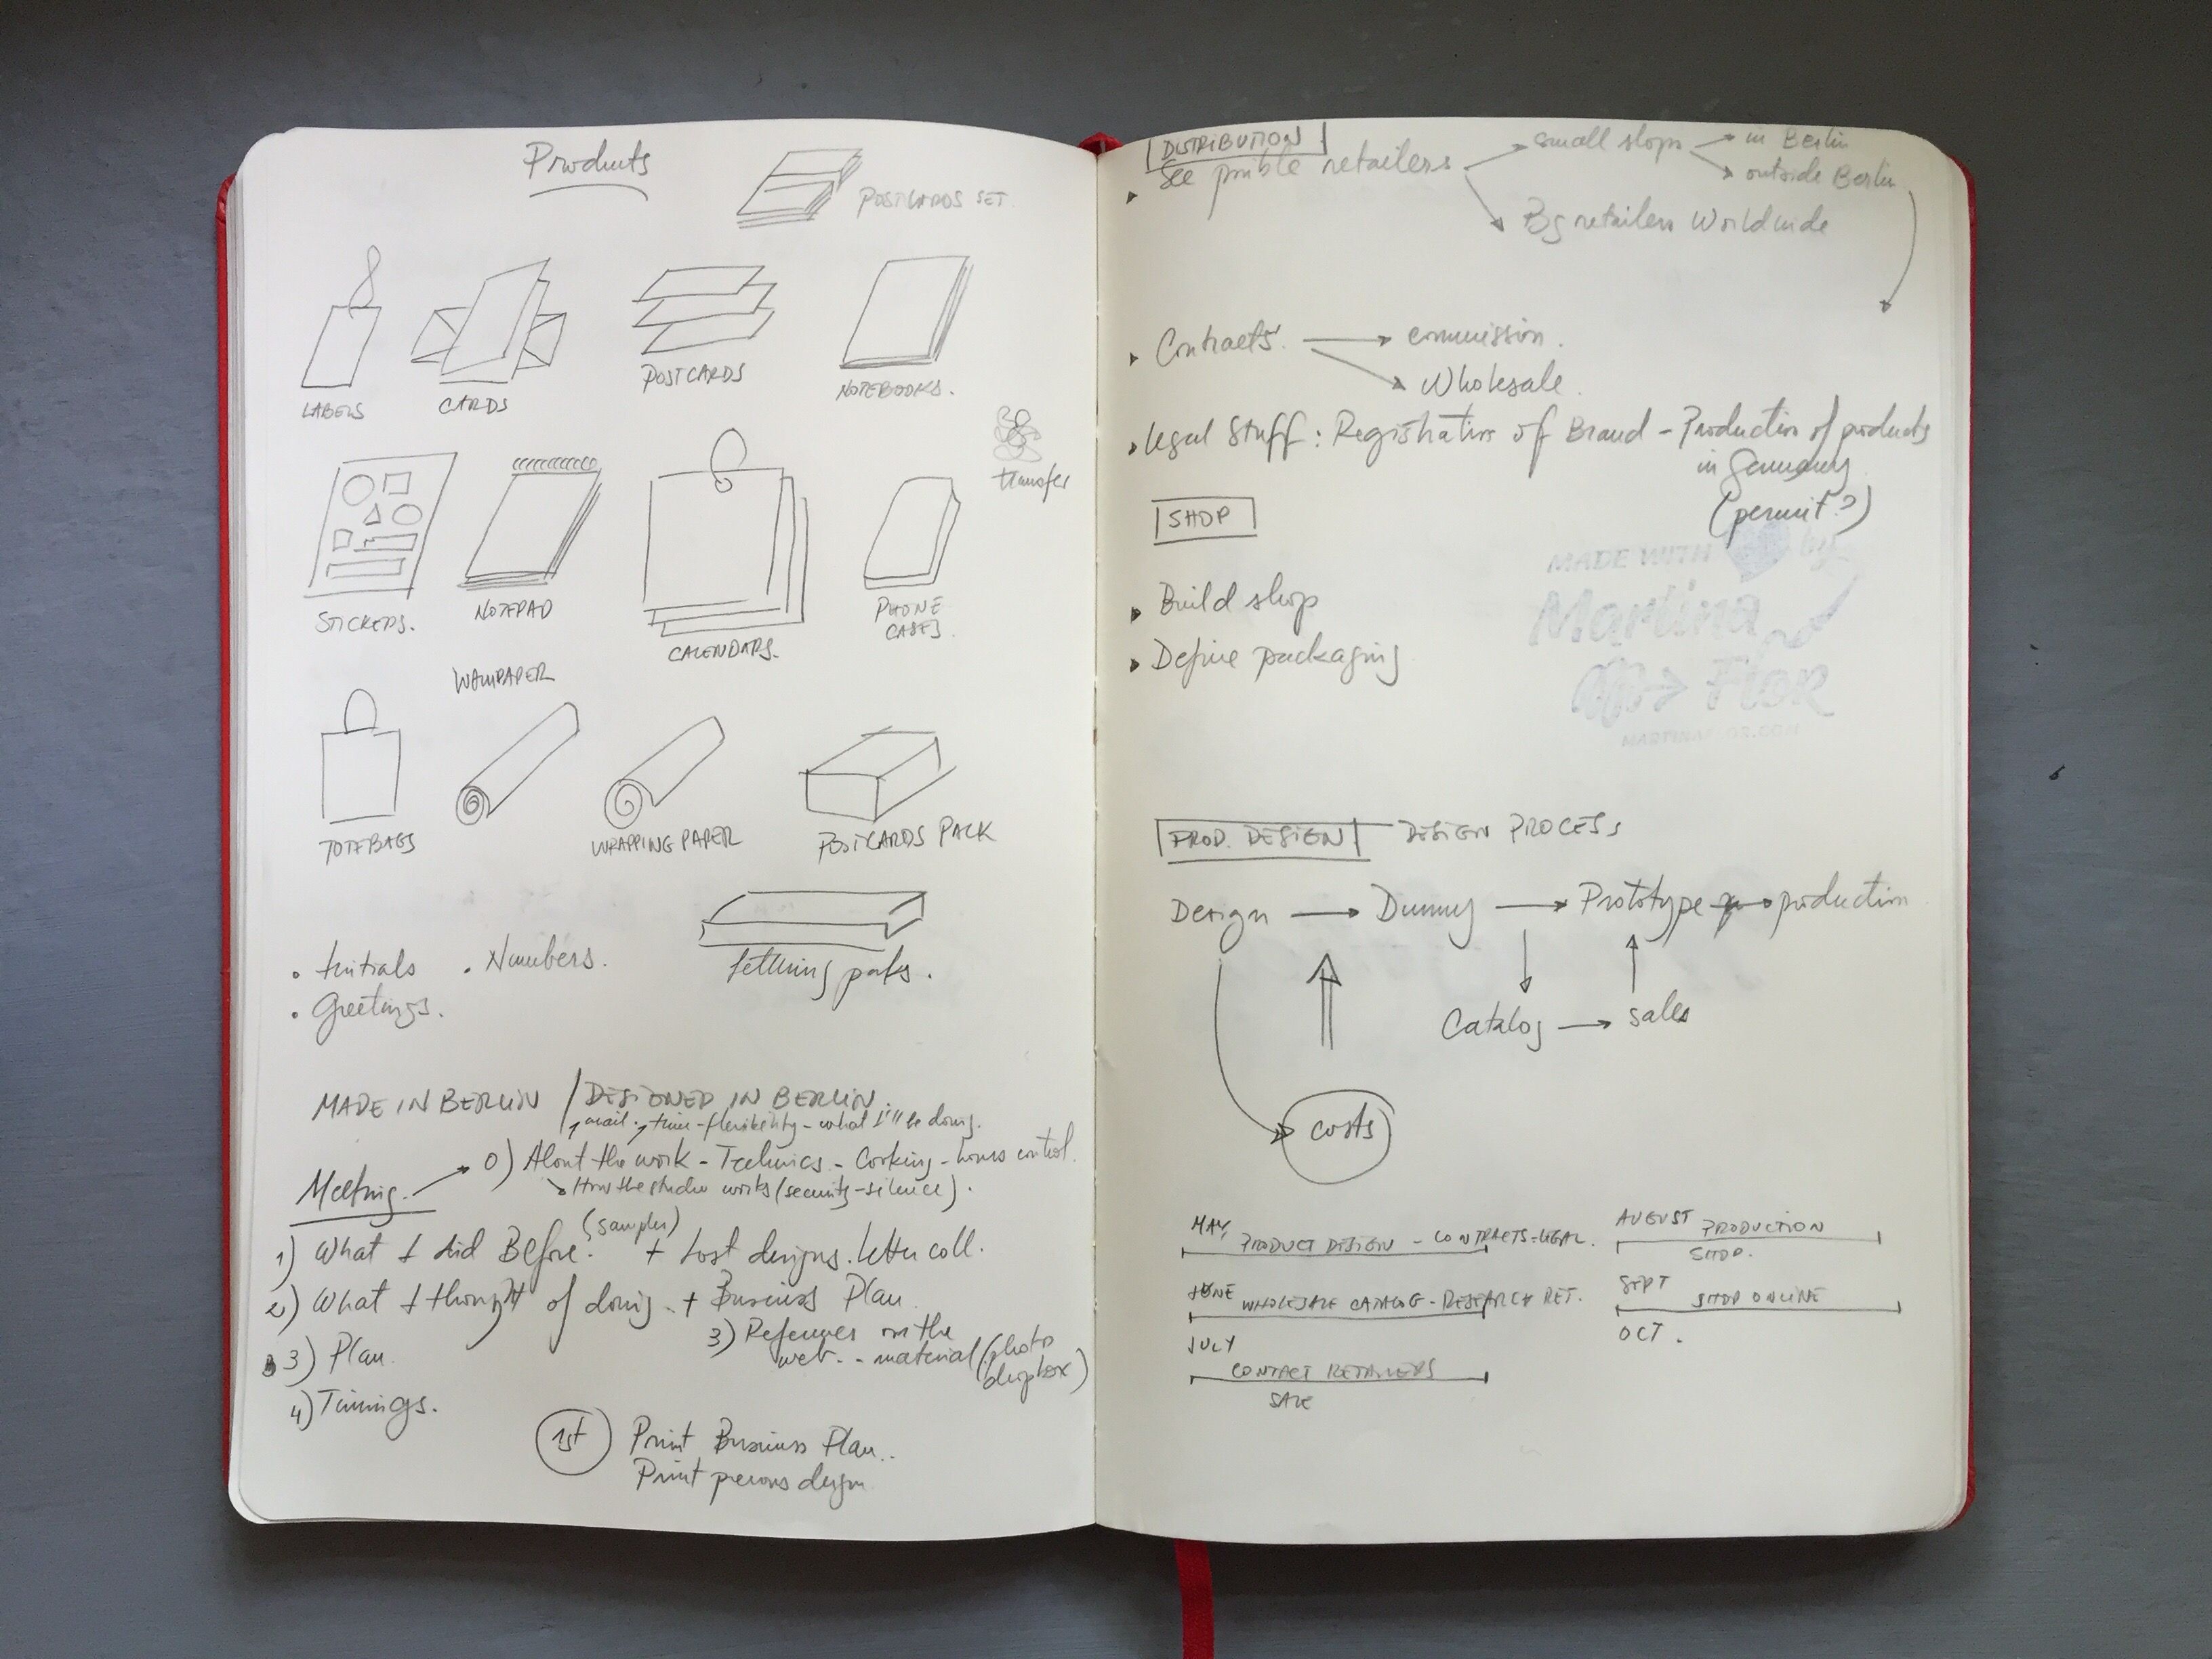 Products
POSTCARDS SET
LABELS
CARDS
POSTCARDS
NOTEBOOKS.
transfer
STICKERS.
NOTEPAD
CALENDARS.
PHONE
CASES.
WALLPAPER
TOTEBAGS
WRAPPING PAPER
POSTCARDS PACK
• Initials • Numbers.
• Greetings.
Lettering
MADE IN BERLIN / DESIGNED IN BERLIN.
mail. time-flexibility - what I'll be doing.
Meeting. 0) About the work - Technics - Cooking - hours control.
How the studio works (security-silence).
(samples)
1) What I did Before. + Lost designs. Letter coll.
2) What I thought of doing + Business Plan
3) Plan.
3) References on the
web.. - material (photo
dropbox)
4) Timings.
1st Print Business Plan..
Print design
DISTRIBUTION
See retailers small shops in Berlin
outside Berlin
Big retailers Worldwide
Contracts. commission.
Wholesale.
Legal Stuff: Registration of Brand - Production of products
in Germany
(permit?)
SHOP
MADE WITH by
Martina
Flor
Build shop
Define packaging
PROD. DESIGN DESIGN PROCESS
Design Dummy Prototype production
Catalog sales
costs
MAY PRODUCT DESIGN - CONTRACTS-LEGAL.
JUNE WHOLESALE CATALOG - RESEARCH RET.
JULY
CONTACT RETAILERS
SALE
AUGUST PRODUCTION
SHOP.
SEPT SHOP ONLINE
OCT.